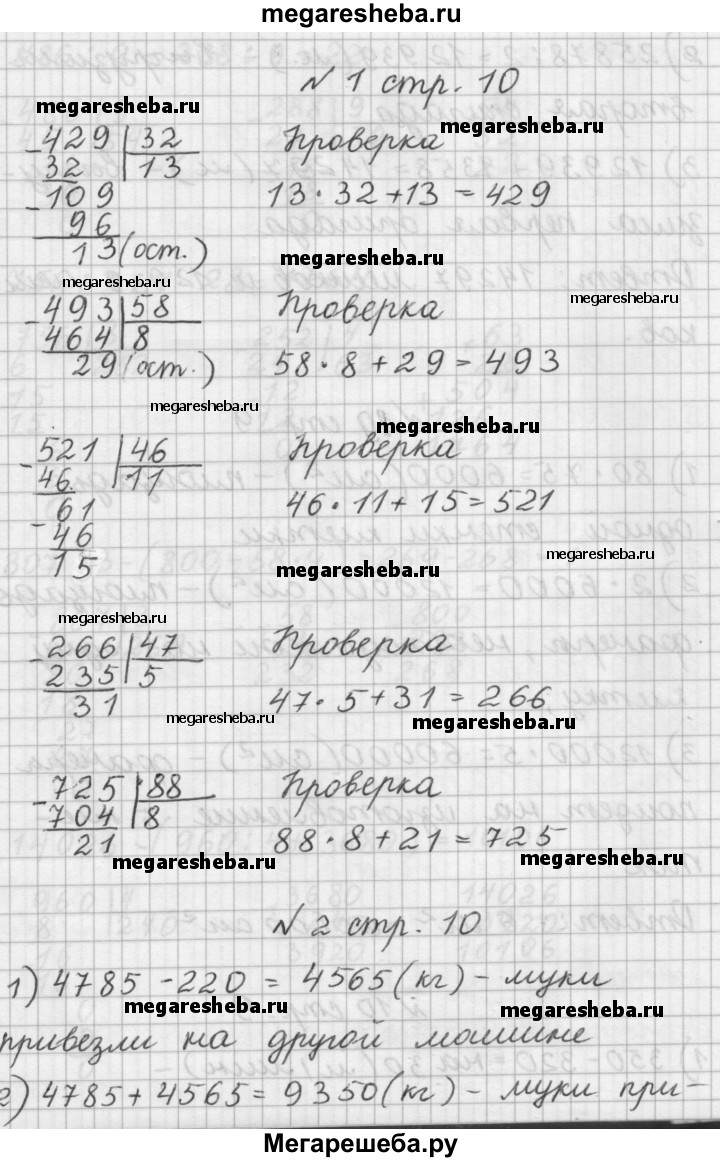 megaresheba.ru
№ 1 стр. 10
megaresheba.ru
megaresheba.ru
-429 | 32
32 | 13
-109
96
13 (ост.)
Проверка
13 · 32 + 13 = 429
megaresheba.ru
megaresheba.ru
megaresheba.ru
-493 | 58
464 | 8
29 (ост.)
Проверка
58 · 8 + 29 = 493
megaresheba.ru
megaresheba.ru
-521 | 46
46. | 11
-61
46
15
Проверка
46 · 11 + 15 = 521
megaresheba.ru
megaresheba.ru
megaresheba.ru
-266 | 47
235 | 5
31
Проверка
47 · 5 + 31 = 266
megaresheba.ru
megaresheba.ru
-725 | 88
704 | 8
21
Проверка
88 · 8 + 21 = 725
megaresheba.ru
megaresheba.ru
№ 2 стр. 10
1) 4785 - 220 = 4565 (кг) - муки
megaresheba.ru
megaresheba.ru
привезли на другой машине
2) 4785 + 4565 = 9350 (кг) - муки при-
Мегарешеба.ру